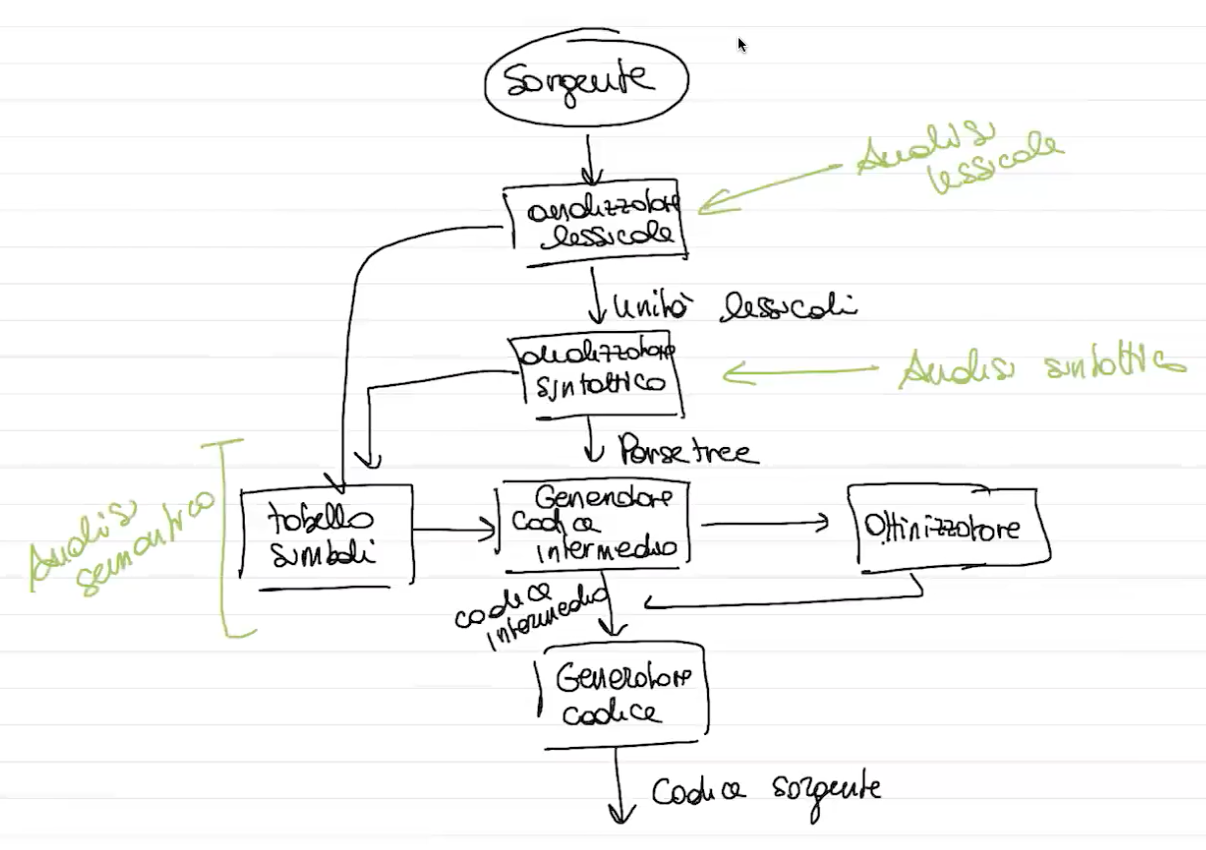 Sorgente
Analisi
lessicale
analizzatore
lessicale
Unità lessicali
analizzatore
sintattico
Analisi sintattica
Parse tree
Analisi
semantica
tabella
simboli
Generatore
Codice
intermedio
Ottimizzatore
codice
intermedio
Generatore
codice
Codice sorgente